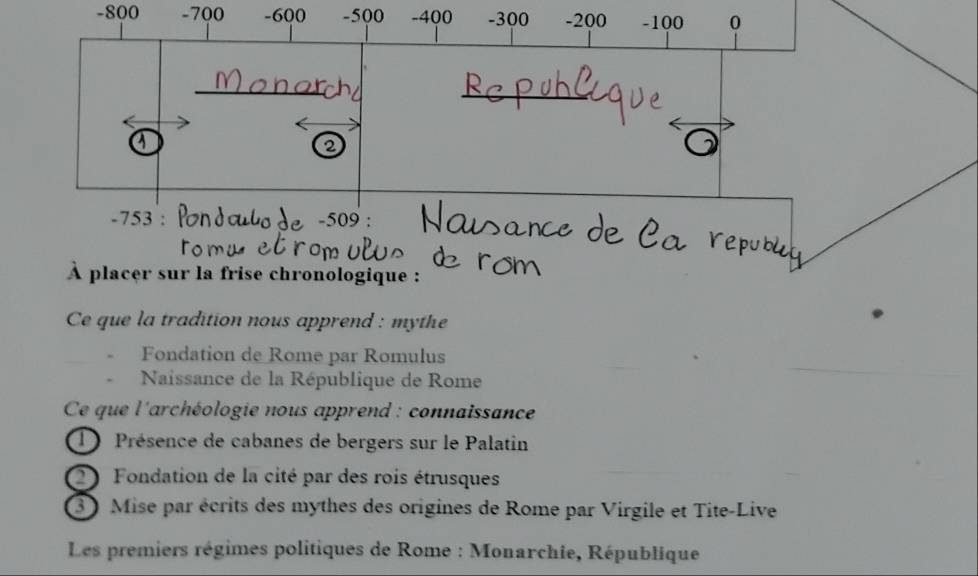 -800 -700 -600 -500 -400 -300 -200 -100 0
Monarchi Republique
1 2
-753 : de -509 : Naisance de la republiq
rome et romulus de rom
À placer sur la frise chronologique :
Ce que la tradition nous apprend : mythe
- Fondation de Rome par Romulus
- Naissance de la République de Rome
Ce que l'archéologie nous apprend : connaissance
1 Présence de cabanes de bergers sur le Palatin
2 Fondation de la cité par des rois étrusques
3 Mise par écrits des mythes des origines de Rome par Virgile et Tite-Live
Les premiers régimes politiques de Rome : Monarchie, République